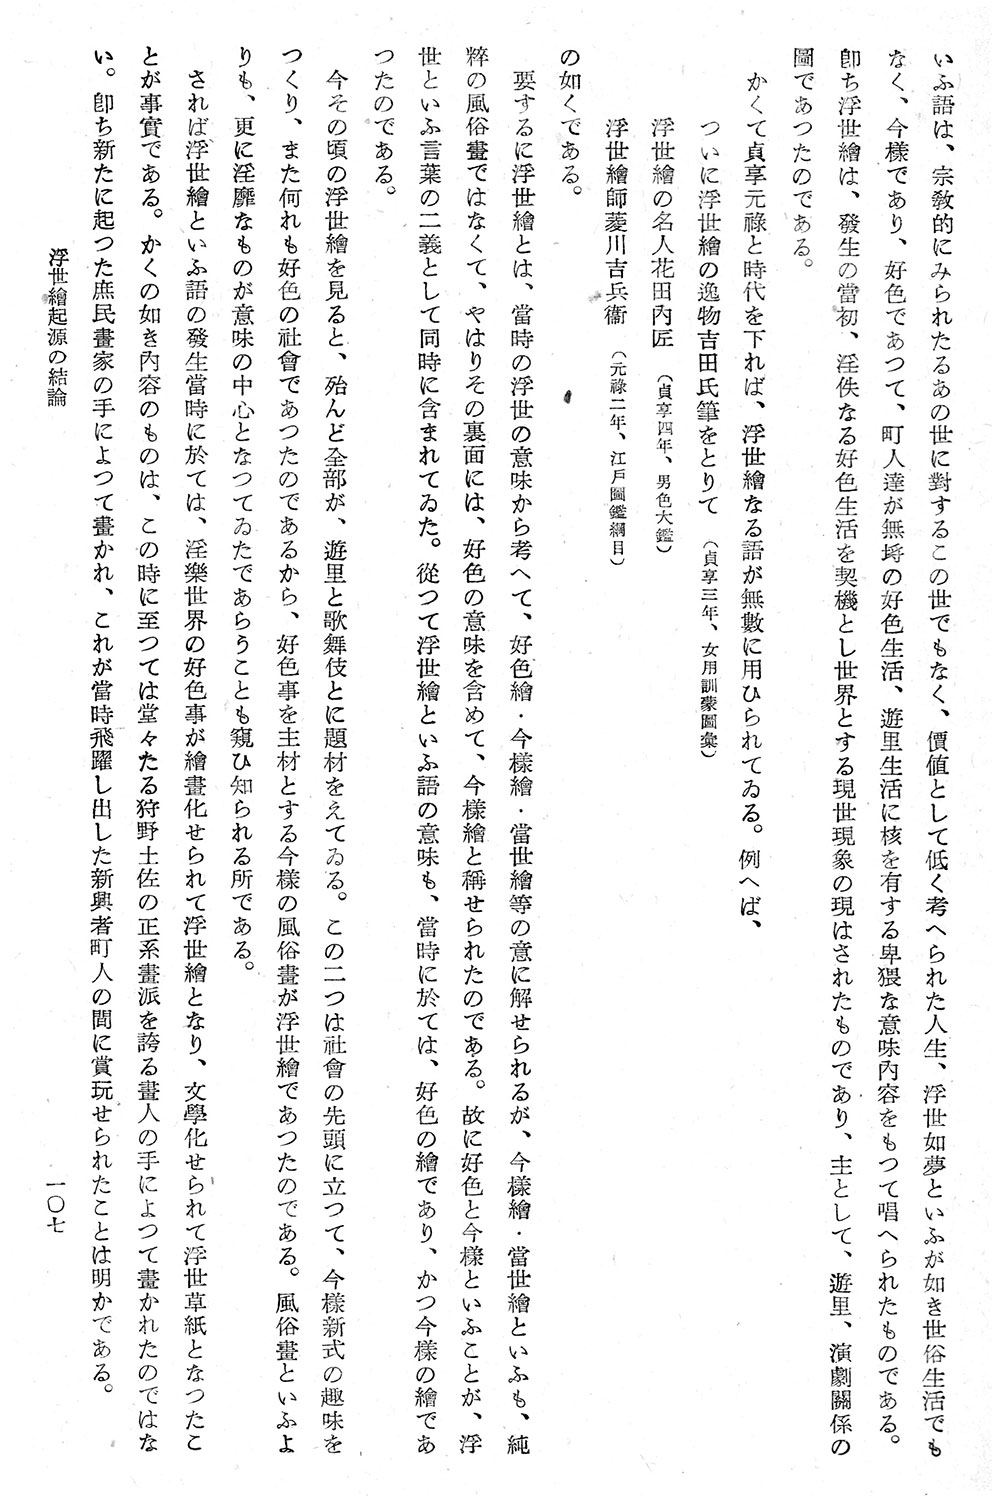 いふ語は、宗敎的にみられたるあの世に對するこの世でもなく、價値として低く考へられた人生、浮世如夢といふが如き世俗生活でも
なく、今樣であり、好色であつて、町人達が無埓の好色生活、遊里生活に核を有する卑猥な意味內容をもつて唱へられたものである。
卽ち浮世繪は、發生の當初、淫佚なる好色生活を契機とし世界とする現世現象の現はされたものであり、主として、遊里、演劇關係の
圖であつたのである。
かくて貞享元祿と時代を下れば、浮世繪なる語が無數に用ひられてゐる。例へば、
ついに浮世繪の逸物吉田氏筆をとりて（貞享三年、女用訓蒙圖彙）
浮世繪の名人花田內匠（貞享四年、男色大鑑）
浮世繪師菱川吉兵衞（元祿二年、江戶圖鑑綱目）
の如くである。
要するに浮世繪とは、當時の浮世の意味から考へて、好色繪・今樣繪・當世繪等の意に解せられるが、今樣繪・當世繪といふも、純
粹の風俗畫ではなくて、やはりその裏面には、好色の意味を含めて、今樣繪と稱せられたのである。故に好色と今樣といふことが、浮
世といふ言葉の二義として同時に含まれてゐた。從つて浮世繪といふ語の意味も、當時に於ては、好色の繪であり、かつ今樣の繪であ
つたのである。
今その頃の浮世繪を見ると、殆んど全部が、遊里と歌舞伎とに題材をえてゐる。この二つは社會の先頭に立つて、今樣新式の趣味を
つくり、また何れも好色の社會であつたのであるから、好色事を主材とする今樣の風俗畫が浮世繪であつたのである。風俗畫といふよ
りも、更に淫靡なものが意味の中心となつてゐたであらうことも窺ひ知られる所である。
されば浮世繪といふ語の發生當時に於ては、淫樂世界の好色事が繪畫化せられて浮世繪となり、文學化せられて浮世草紙となつたこ
とが事實である。かくの如き內容のものは、この時に至つては堂々たる狩野土佐の正系畫派を誇る畫人の手によつて畫かれたのではな
い。卽ち新たに起つた庶民畫家の手によつて畫かれ、これが當時飛躍し出した新興者町人の間に賞玩せられたことは明かである。
浮世繪起源の結論
一〇七